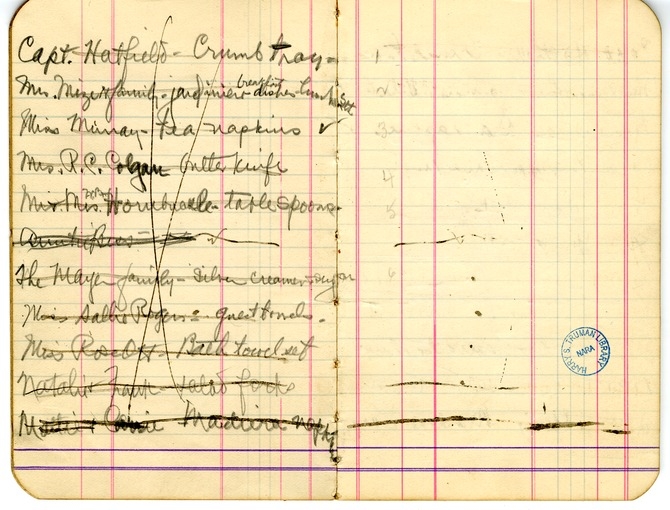 Capt. Hatfield - Crumb tray -
Mrs. Mize & family - jardinier breakfast dishes lunch set
Miss Murray - tea napkins ✓
Mrs. R.C. Colgan butter knife
Mr. Mrs. Hornbuckle - table spoons -
The Mayer family - silver creamer - sugar
Miss Sallie Rogers - guest towels -
Miss Rose Ott - Bath towel set
Natalie & Frank - salad forks
Madeira napkins
HARRY S. TRUMAN LIBRARY
NARA